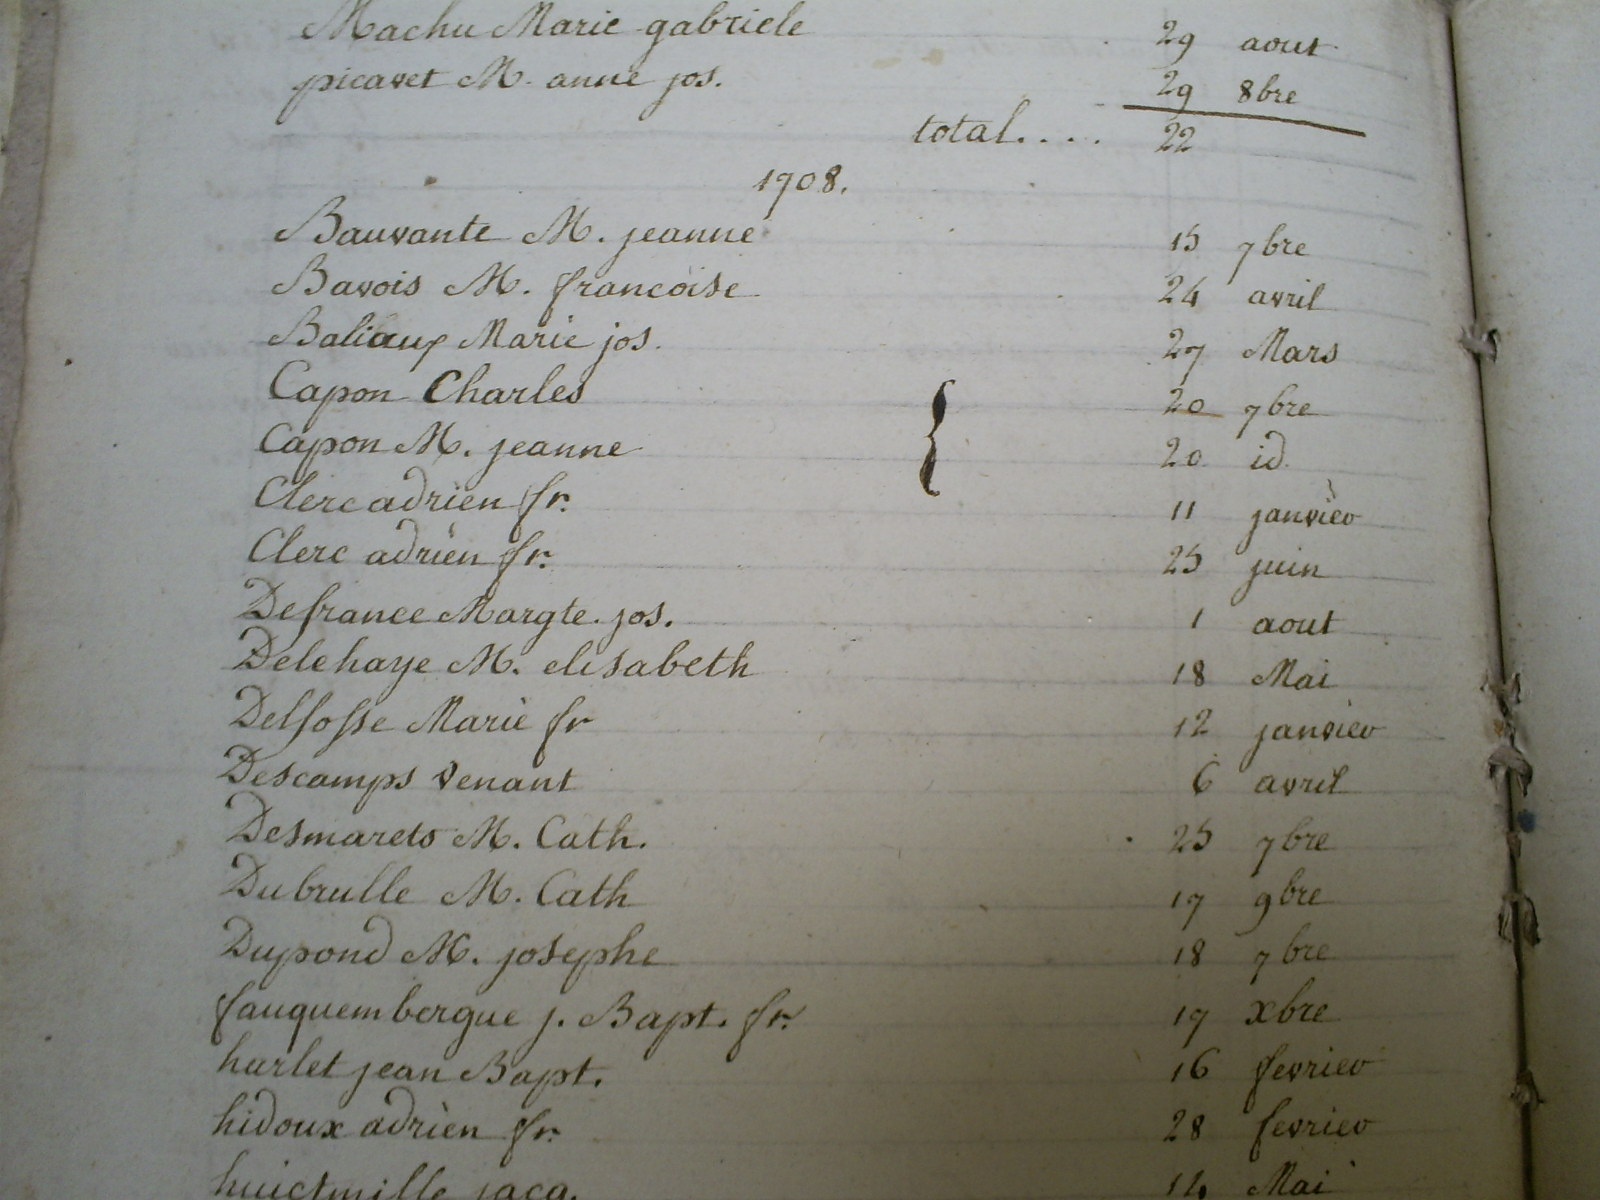 Machu Marie gabriele 29 aout
picavet M. anne jos. 29 8bre
total.... 22
1708.
Bauvante M. jeanne 15 7bre
Bavois M. francoise 24 avril
Baliaux Marie jos. 27 Mars
Capon Charles 20 7bre
Capon M. jeanne 20 id.
Clerc adrien fr. 11 janvier
Clerc adrien fr. 25 juin
Defrance Margte. jos. 1 aout
Delehaye M. elisabeth 18 Mai
Delfosse Marie fr 12 janvier
Descamps venant 6 avril
Desmarets M. Cath. 25 7bre
Dubrulle M. Cath 17 9bre
Dupond M. josephe 18 7bre
fauquembergue j. Bapt. fr. 17 xbre
hurlet jean Bapt. 16 fevrier
hidoux adrien fr. 28 fevrier
huictmille jacq. 14 Mai